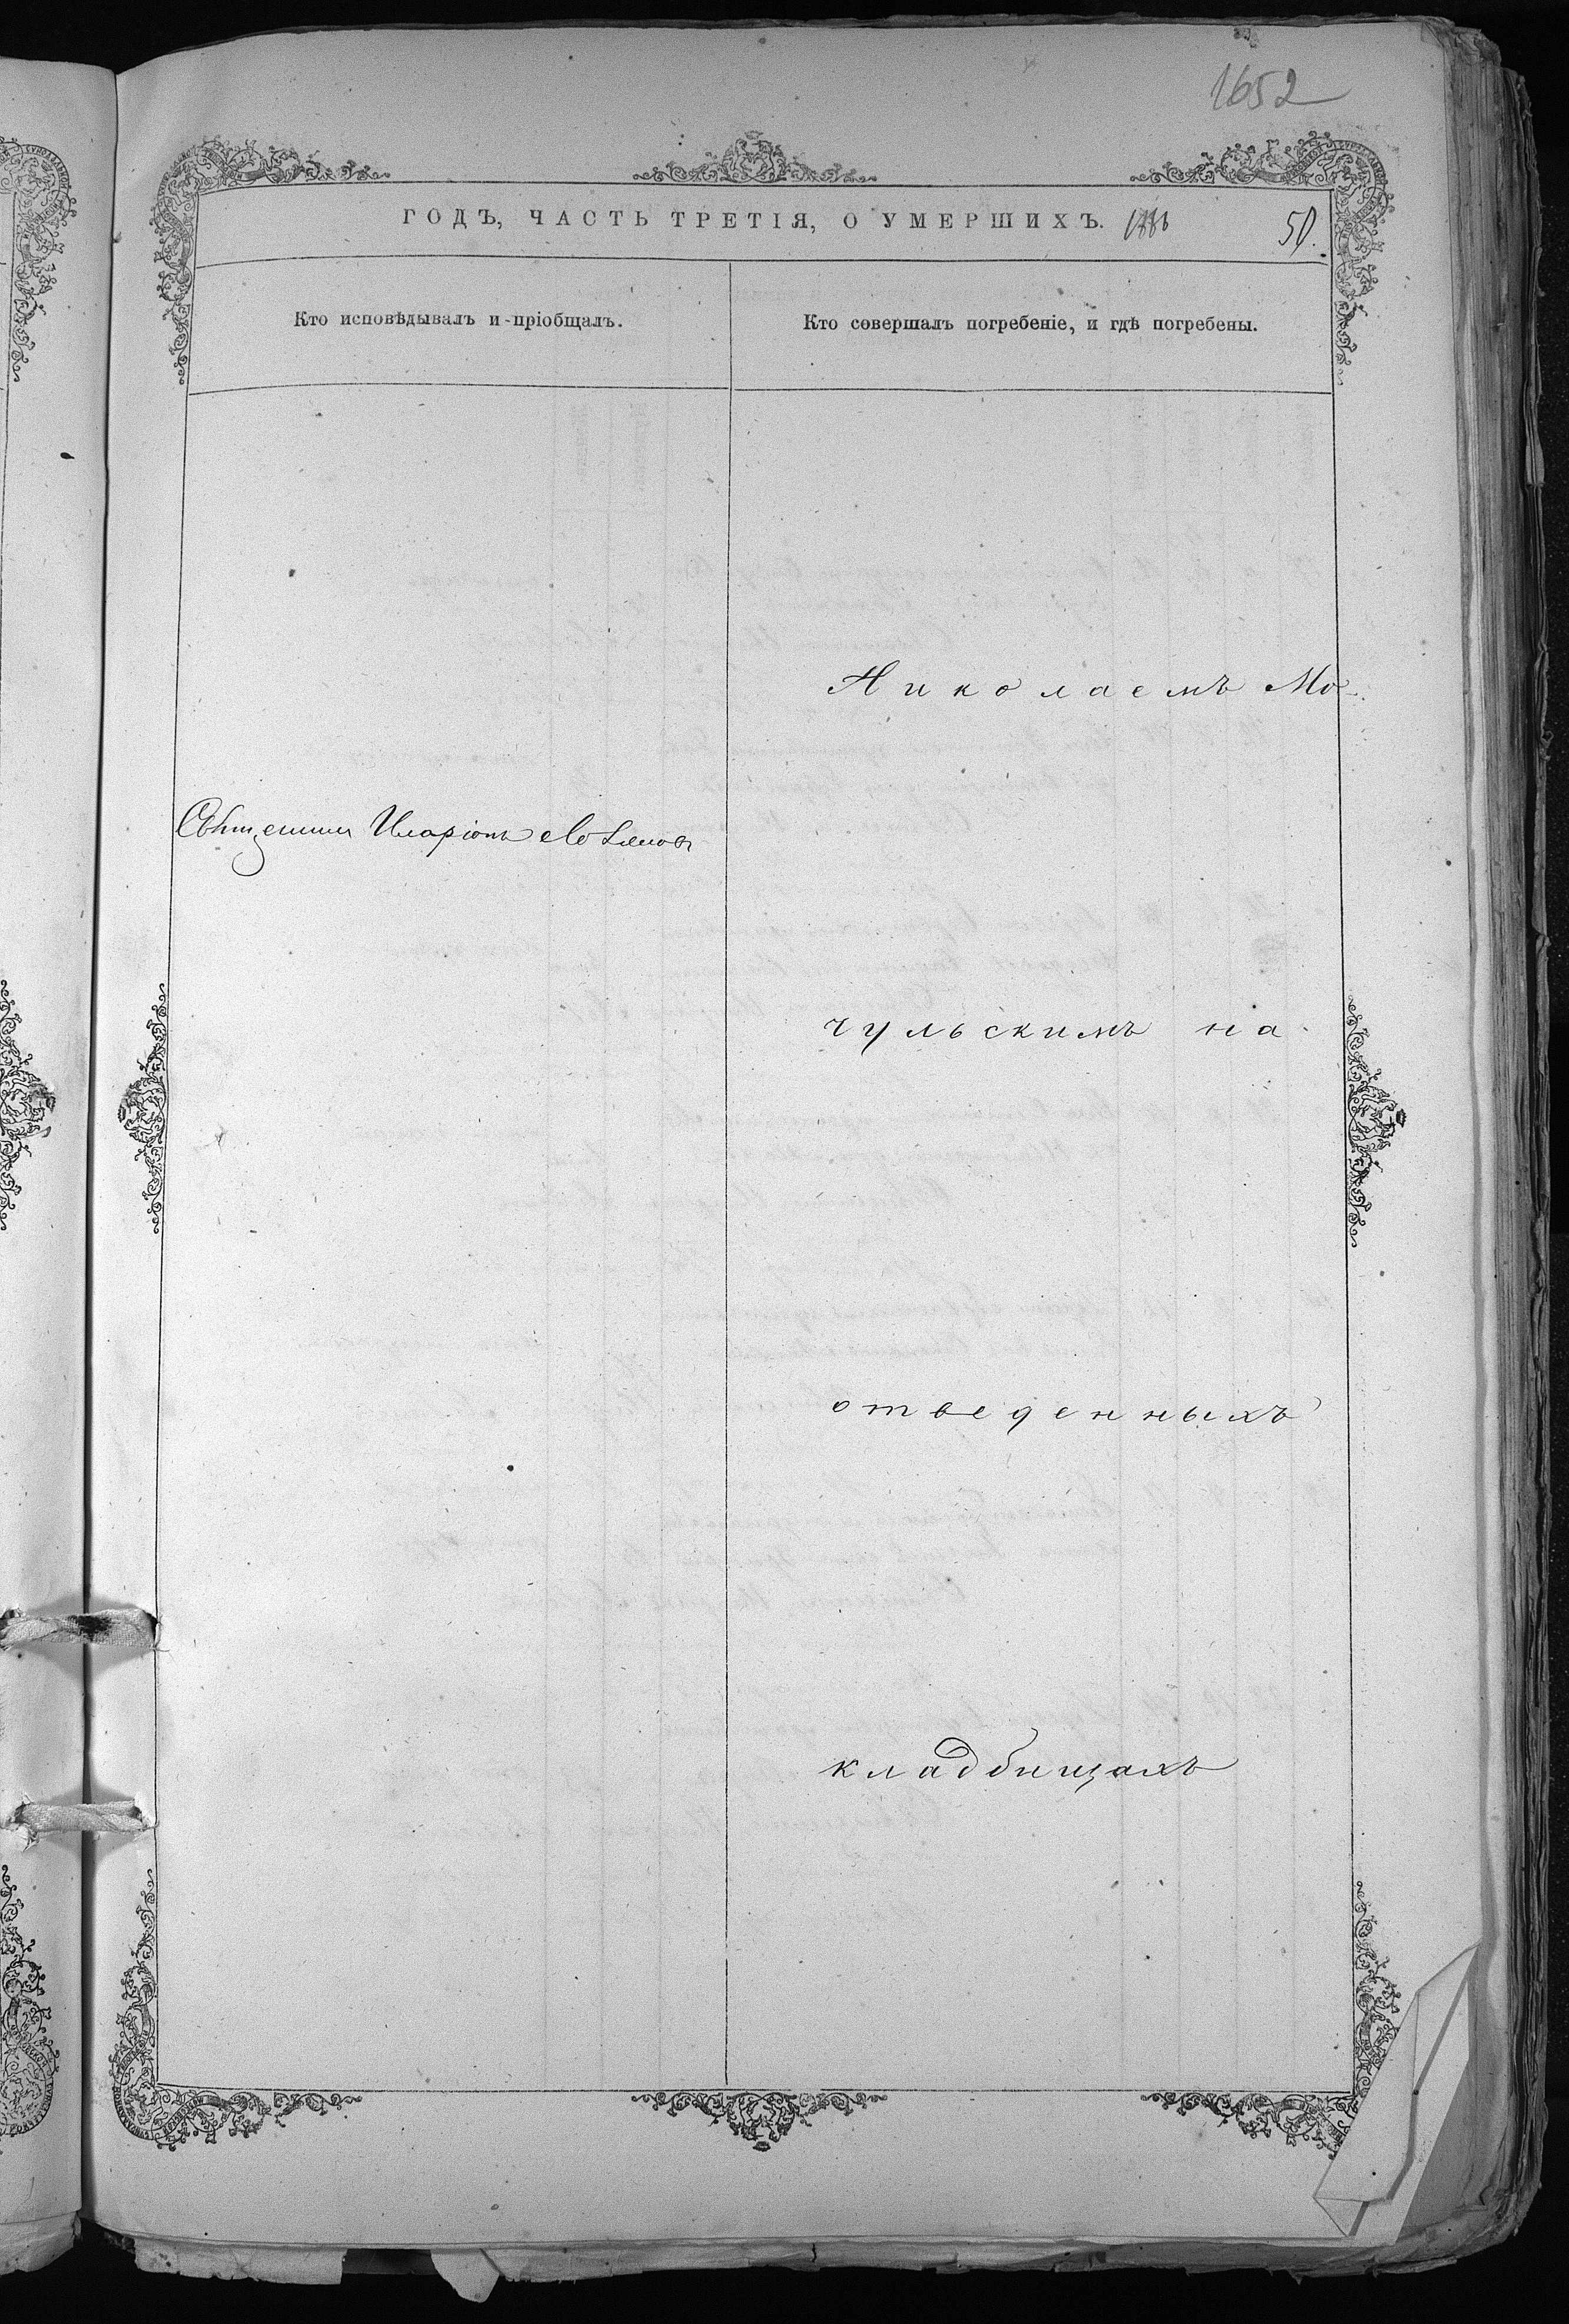 1652
ГОДЪ, ЧАСТЬ ТРЕТІЯ, О УМЕРШИХЪ. 1886
51.
Кто исповѣдывалъ и пріобщалъ.
Кто совершалъ погребеніе, и гдѣ погребены.
Николаемъ Мо-
Священник Иларіонъ
чульскимъ на
отведенныхъ
кладбищахъ